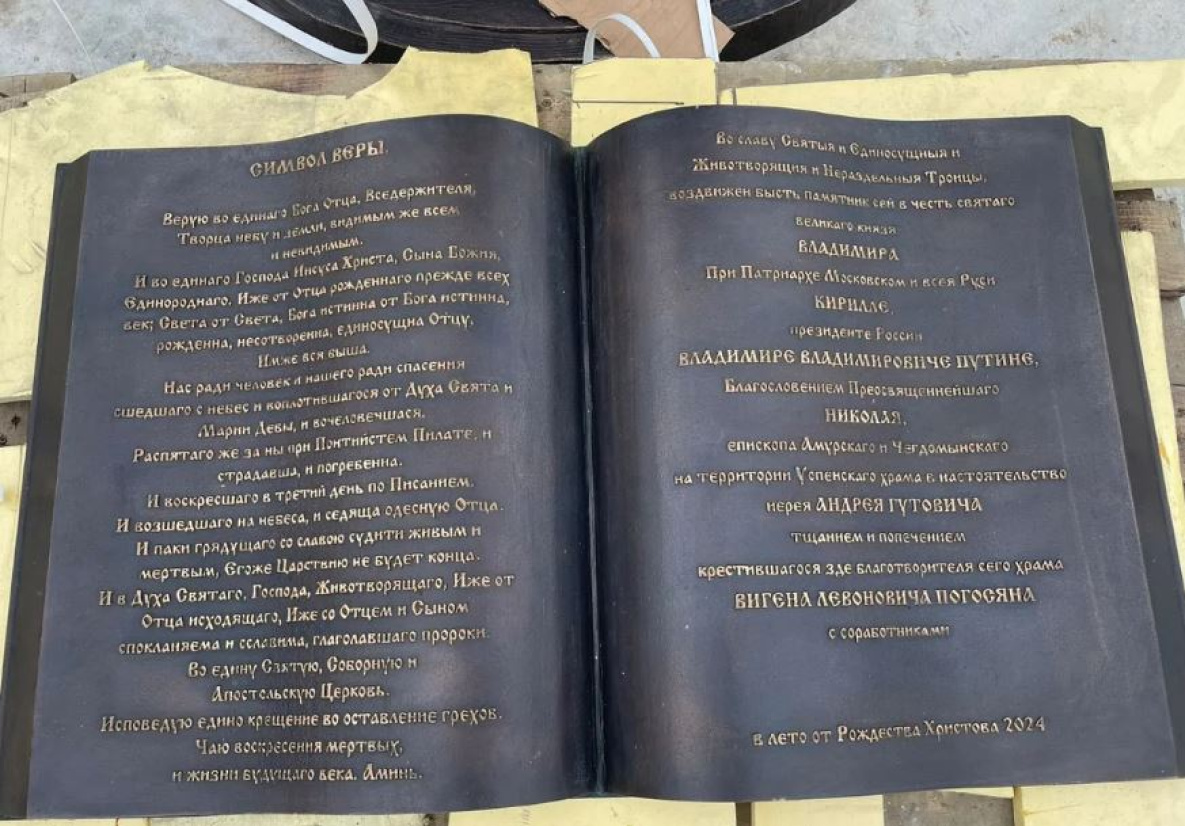 СИМВОЛ ВЕРЫ.
Верую во единаго Бога Отца, Вседержителя,
Творца небу и земли, видимым же всем
и невидимым.
И во единаго Господа Иисуса Христа, Сына Божия,
Единороднаго, Иже от Отца рожденнаго прежде всех
век; Света от Света, Бога истинна от Бога истинна,
рожденна, несотворенна, единосущна Отцу,
Имже вся быша.
Нас ради человек и нашего ради спасения
сшедшаго с небес и воплотившагося от Духа Свята и
Марии Девы, и вочеловечшася.
Распятаго же за ны при Понтийстем Пилате, и
страдавша, и погребенна.
И воскресшаго в третий день по Писанием.
И возшедшаго на небеса, и седяща одесную Отца.
И паки грядущаго со славою судити живым и
мертвым, Егоже Царствию не будет конца.
И в Духа Святаго, Господа, Животворящаго, Иже от
Отца исходящаго, Иже со Отцем и Сыном
спокланяема и сславима, глаголавшаго пророки.
Во едину Святую, Соборную и
Апостольскую Церковь.
Исповедую едино крещение во оставление грехов.
Чаю воскресения мертвых,
и жизни будущаго века. Аминь.
Во славу Святыя и Единосущныя и
Животворящия и Нераздельныя Троицы,
воздвижен бысть памятник сей в честь святаго
великаго князя
ВЛАДИМИРА
При Патриархе Московском и всея Руси
КИРИЛЛЕ,
президенте России
ВЛАДИМИРЕ ВЛАДИМИРОВИЧЕ ПУТИНЕ,
Благословением Преосвященнейшаго
НИКОЛАЯ,
епископа Амурскаго и Чегдомынскаго
на территории Успенскаго храма в настоятельство
иерея АНДРЕЯ ГУТОВИЧА
тщанием и попечением
крестившагося зде благотворителя сего храма
ВИГЕНА ЛЕВОНОВИЧА ПОГОСЯНА
с соработниками
в лето от Рождества Христова 2024